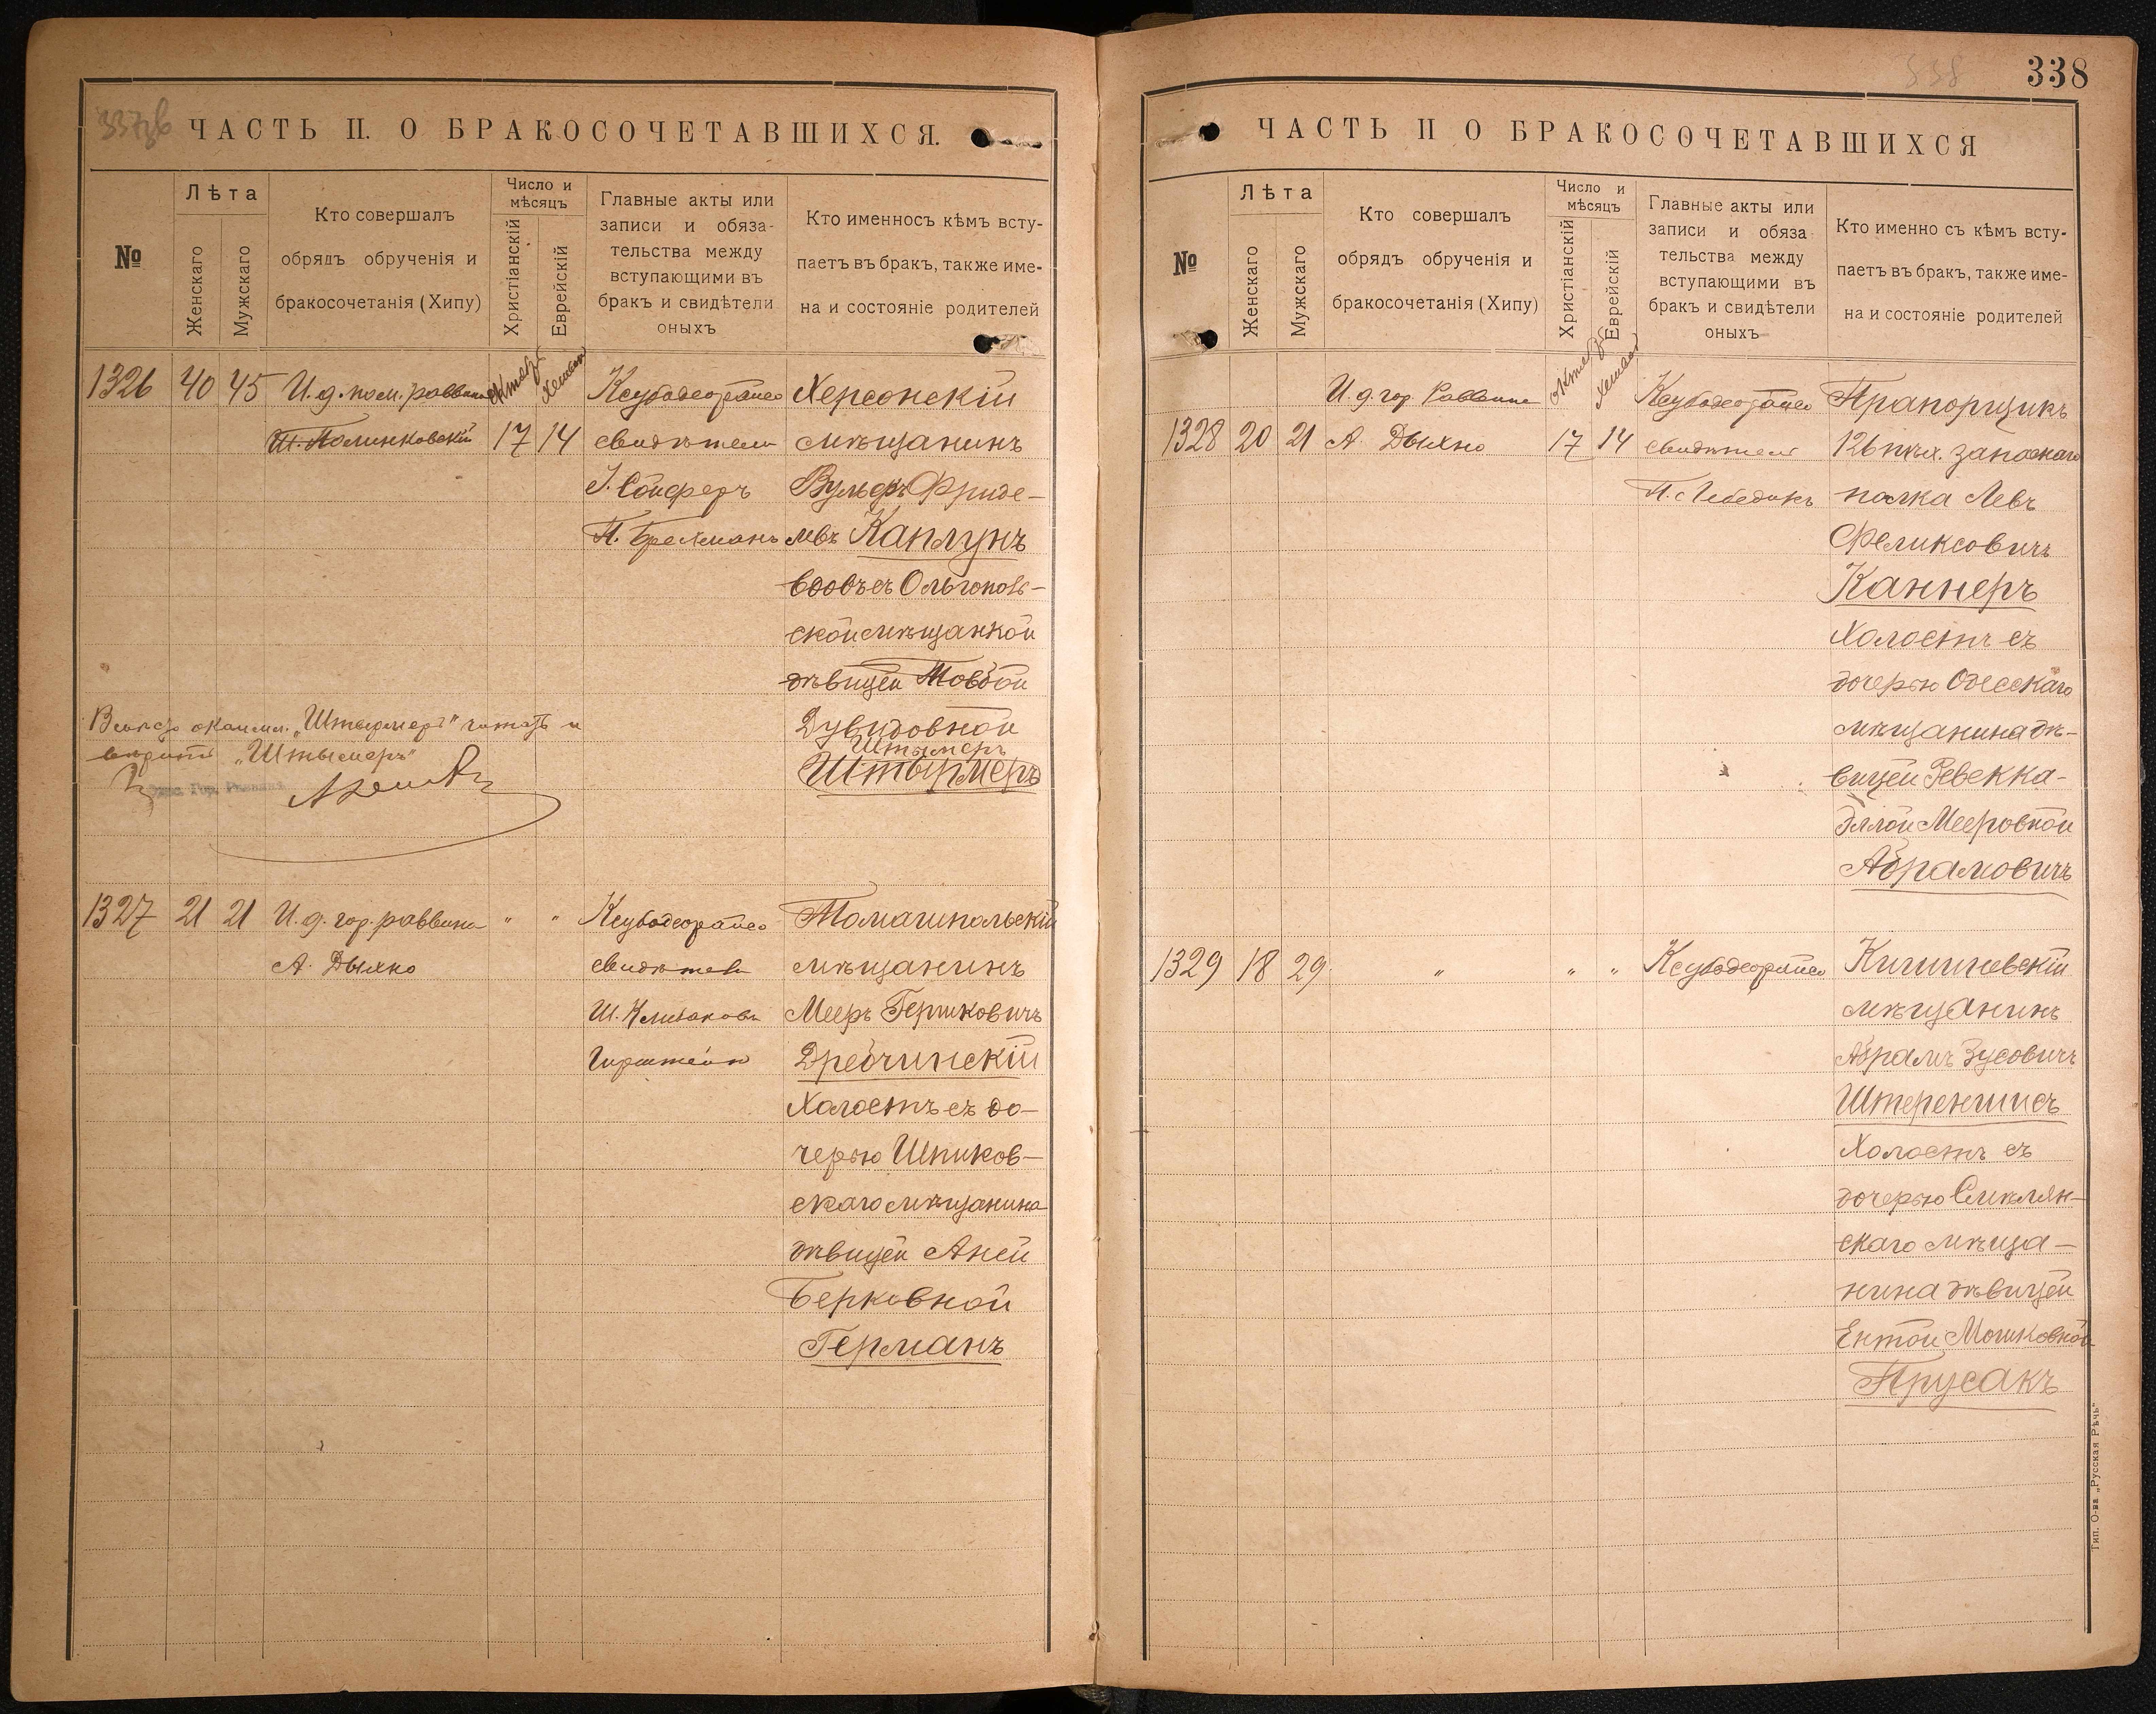 337об
ЧАСТЬ II. О БРАКОСОЧЕТАВШИХСЯ.
№
Лѣта
Женскаго
Мужскаго
Кто совершалъ
обрядъ обрученія и
бракосочетанія (Хипу)
Число и
мѣсяцъ
Христіанскій
Еврейскій
Главные акты или
записи и обяза-
тельства между
вступающими въ
бракъ и свидѣтели
оныхъ
Кто именносъ кѣмъ всту-
паетъ въ бракъ, также име-
на и состояніе родителей
1326 40 45
И. д. пом. раввина
Полинковскій
17 14
свидѣтели
І. Сойферъ
Херсонскій
мѣщанинъ
Вульфъ Фриде-
левъ Каплунъ
вдовъ съ Ольгополь-
ской мѣщанкой
дѣвицей
Дувидовной
Штымеръ
Штырмеръ
"Штырмеръ" читать и
"Штымеръ"
Гор. Раввинъ
1327 21 21
И. д. гор. раввина
А. Дыхно
" "
свидѣтели
Томашпольскій
мѣщанинъ
Мееръ Гершковичъ
Дребчинскій
Холостъ съ до-
черью Шпиков-
скаго мѣщанина
дѣвицей Аней
Берковной
Германъ
338
338
ЧАСТЬ II О БРАКОСОЧЕТАВШИХСЯ
№
Лѣта
Женскаго
Мужскаго
Кто совершалъ
обрядъ обрученія и
бракосочетанія (Хипу)
Число и
мѣсяцъ
Христіанскій
Еврейскій
Главные акты или
записи и обяза
тельства между
вступающими въ
бракъ и свидѣтели
оныхъ
Кто именно съ кѣмъ всту-
паетъ въ бракъ, также име-
на и состояніе родителей
1328 20 21
И. д. гор. Раввина
А. Дыхно
17 14
свидѣтели
Прапорщикъ
126 пѣх. запаснаго
полка Левъ
Феликсовичъ
Каннеръ
Холостъ съ
дочерью Одесскаго
мѣщанина дѣ-
вицей Ревекка-
Эллой Мееровной
Абрамовичъ
1329 18 29
" " "
Кишиневскій
мѣщанинъ
Абрамъ Зусовичъ
Штереншисъ
Холостъ съ
дочерью Смѣлян-
скаго мѣща-
нина дѣвицей
Ентой Мошковной
Прусакъ
Тип. О-ва „Русская Рѣчь“